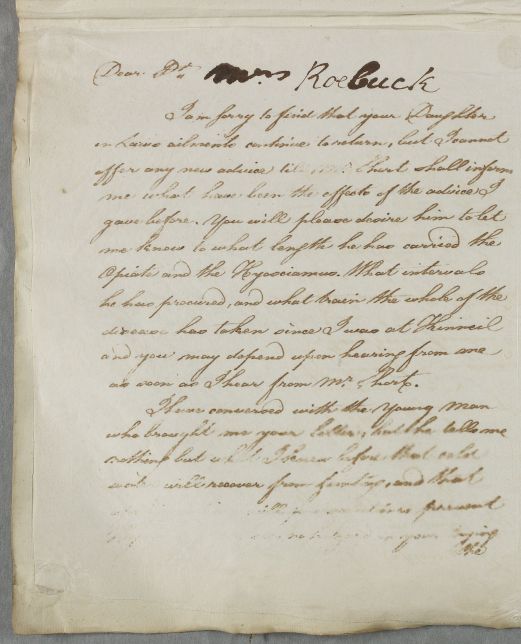 Dear Dr. Mrs Roebuck
I am sorry to find that your Daughter
ailments continue to return, but I cannot
offer any new advice till Mr. Short shall inform
me what have been the effects of the advice I
gave before. You will please desire him to let
me know to what length he has carried the
Opiate and the Hyosciamus. What intervals
he has procured, and what train the whole of the
disease has taken since I was at Kinneil
and you may depend upon hearing from me
as soon as I hear from Mr. Short.
I have conversed with the young man
who brought me your letter, but he tells me
nothing but what I knew before that cold
water will recover from fainting, and that
will prevent
in your trying
the